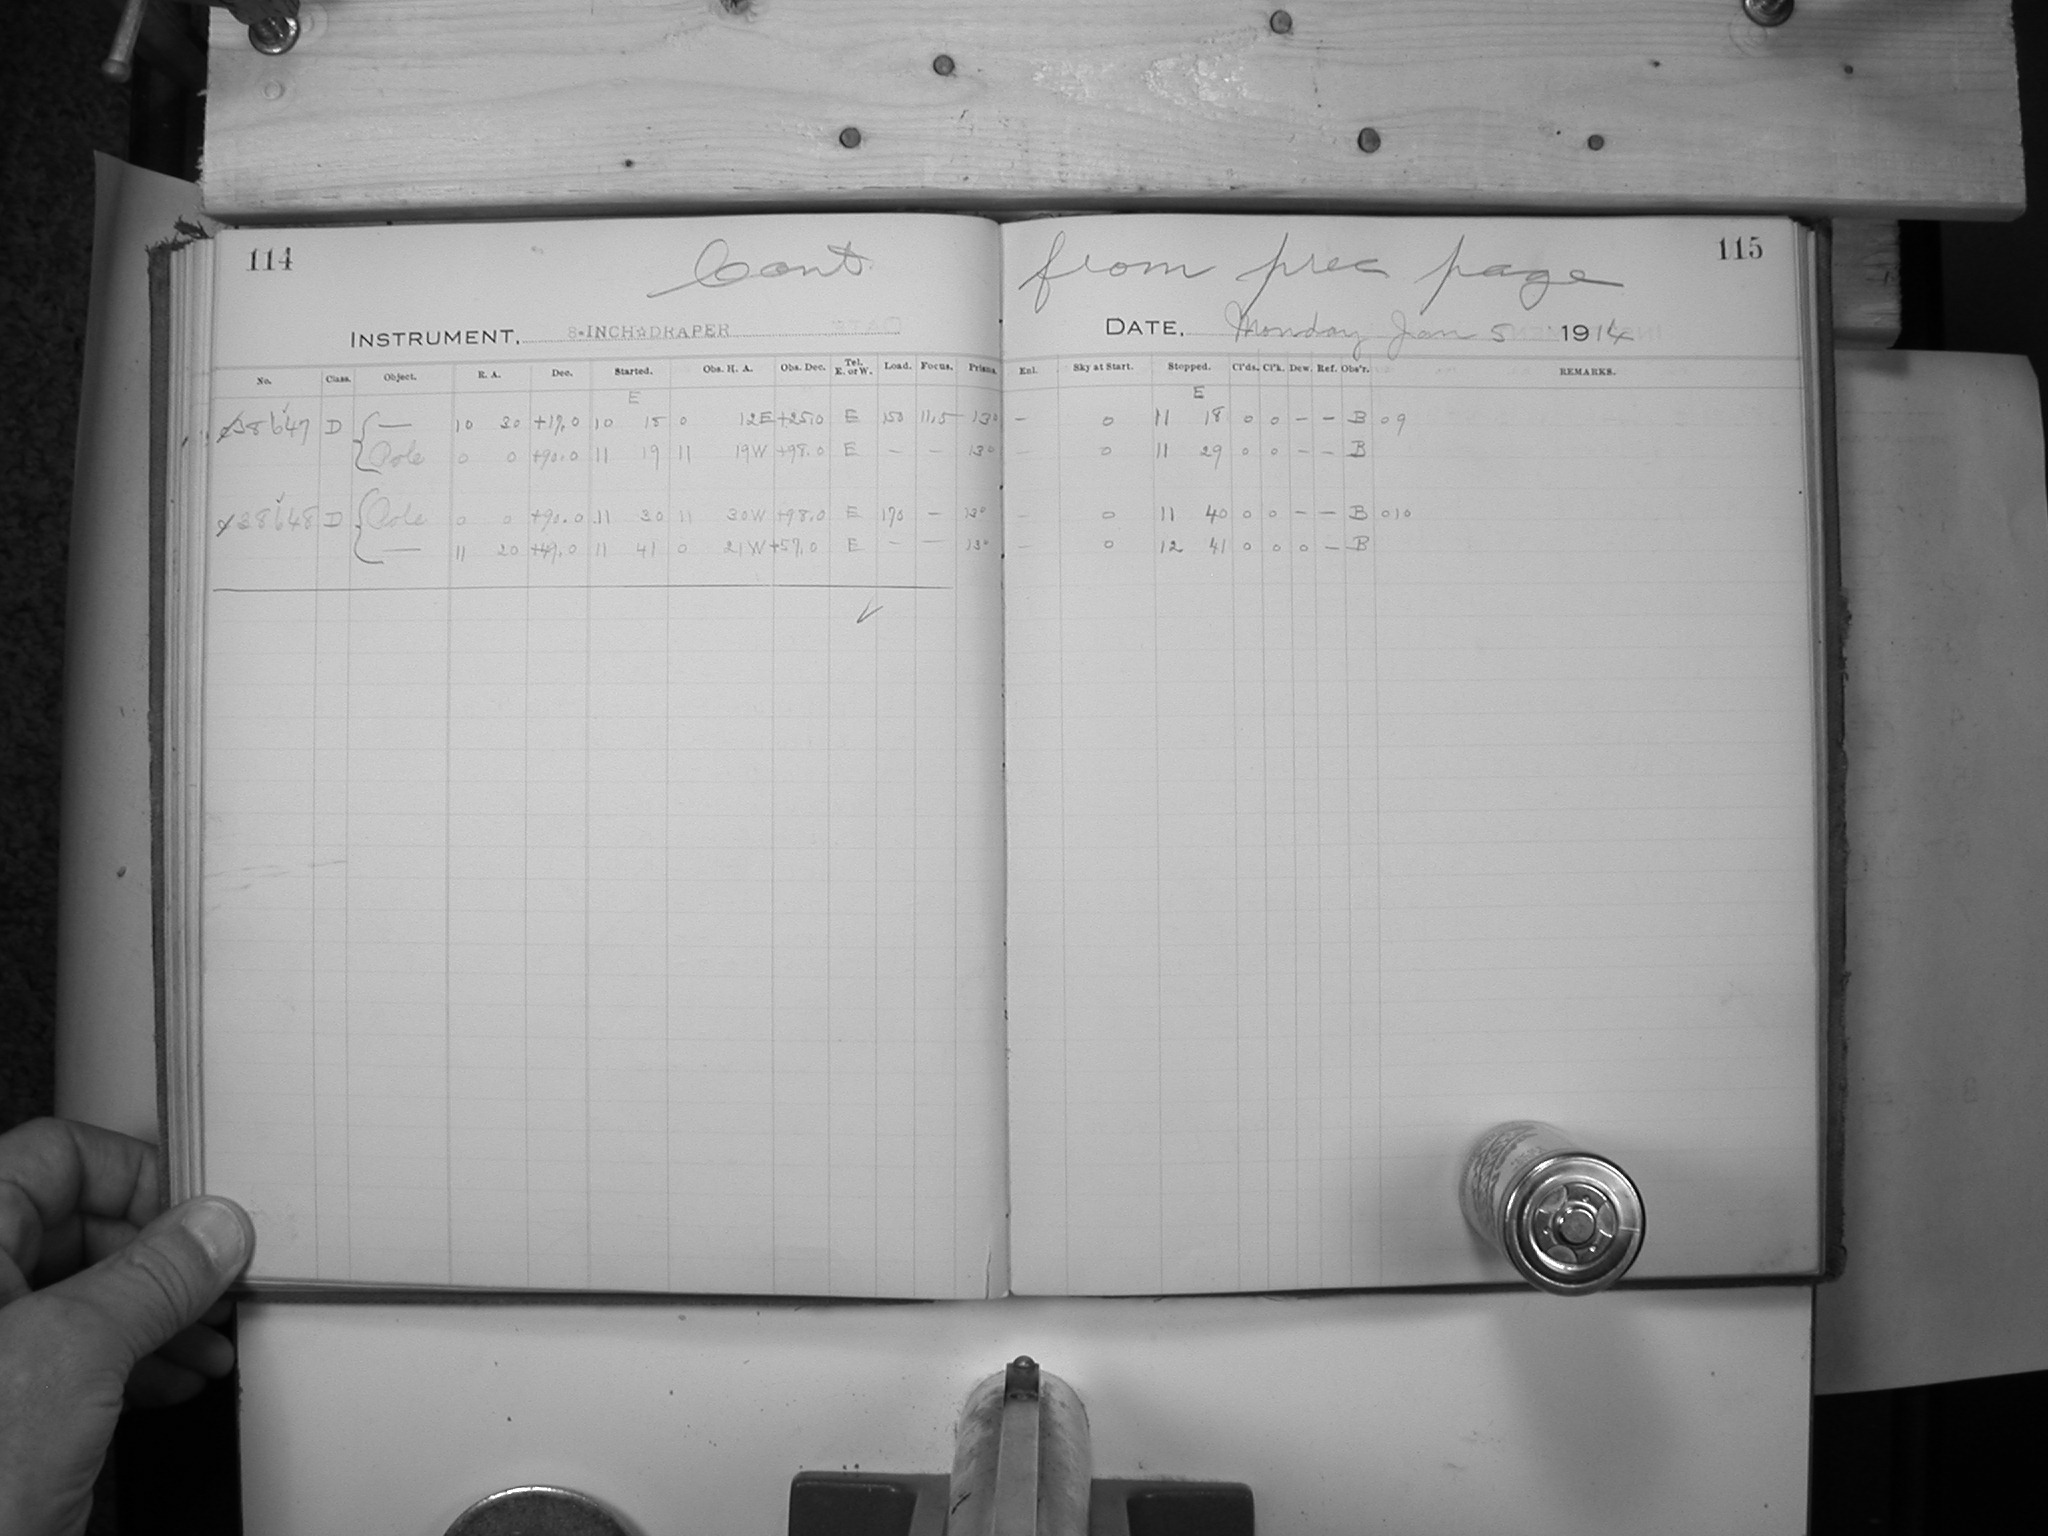 114 Cont from prec page 115
INSTRUMENT, 8-INCH☆DRAPER DATE, Monday Jan 5 1914
No. Class. Object. R. A. Dec. Started. Obs. H. A. Obs. Dec. Tel. E. or W. Load. Focus. Prisms. Enl. Sky at Start. Stopped. Cl'ds. Cl'k. Dew. Ref. Obs'r. REMARKS.
E E
38647 D { — 10 30 +17.0 10 15 0 12E +25.0 E 150 11.5 13° — 0 11 18 0 0 — — B 09
Pole 0 0 +90.0 11 19 11 19W +98.0 E — — 13° — 0 11 29 0 0 — — B
38648 D { Pole 0 0 +90.0 11 30 11 30W +98.0 E 170 — 13° — 0 11 40 0 0 — — B 010
— 11 20 +49.0 11 41 0 21W +57.0 E — — 13° — 0 12 41 0 0 0 — B